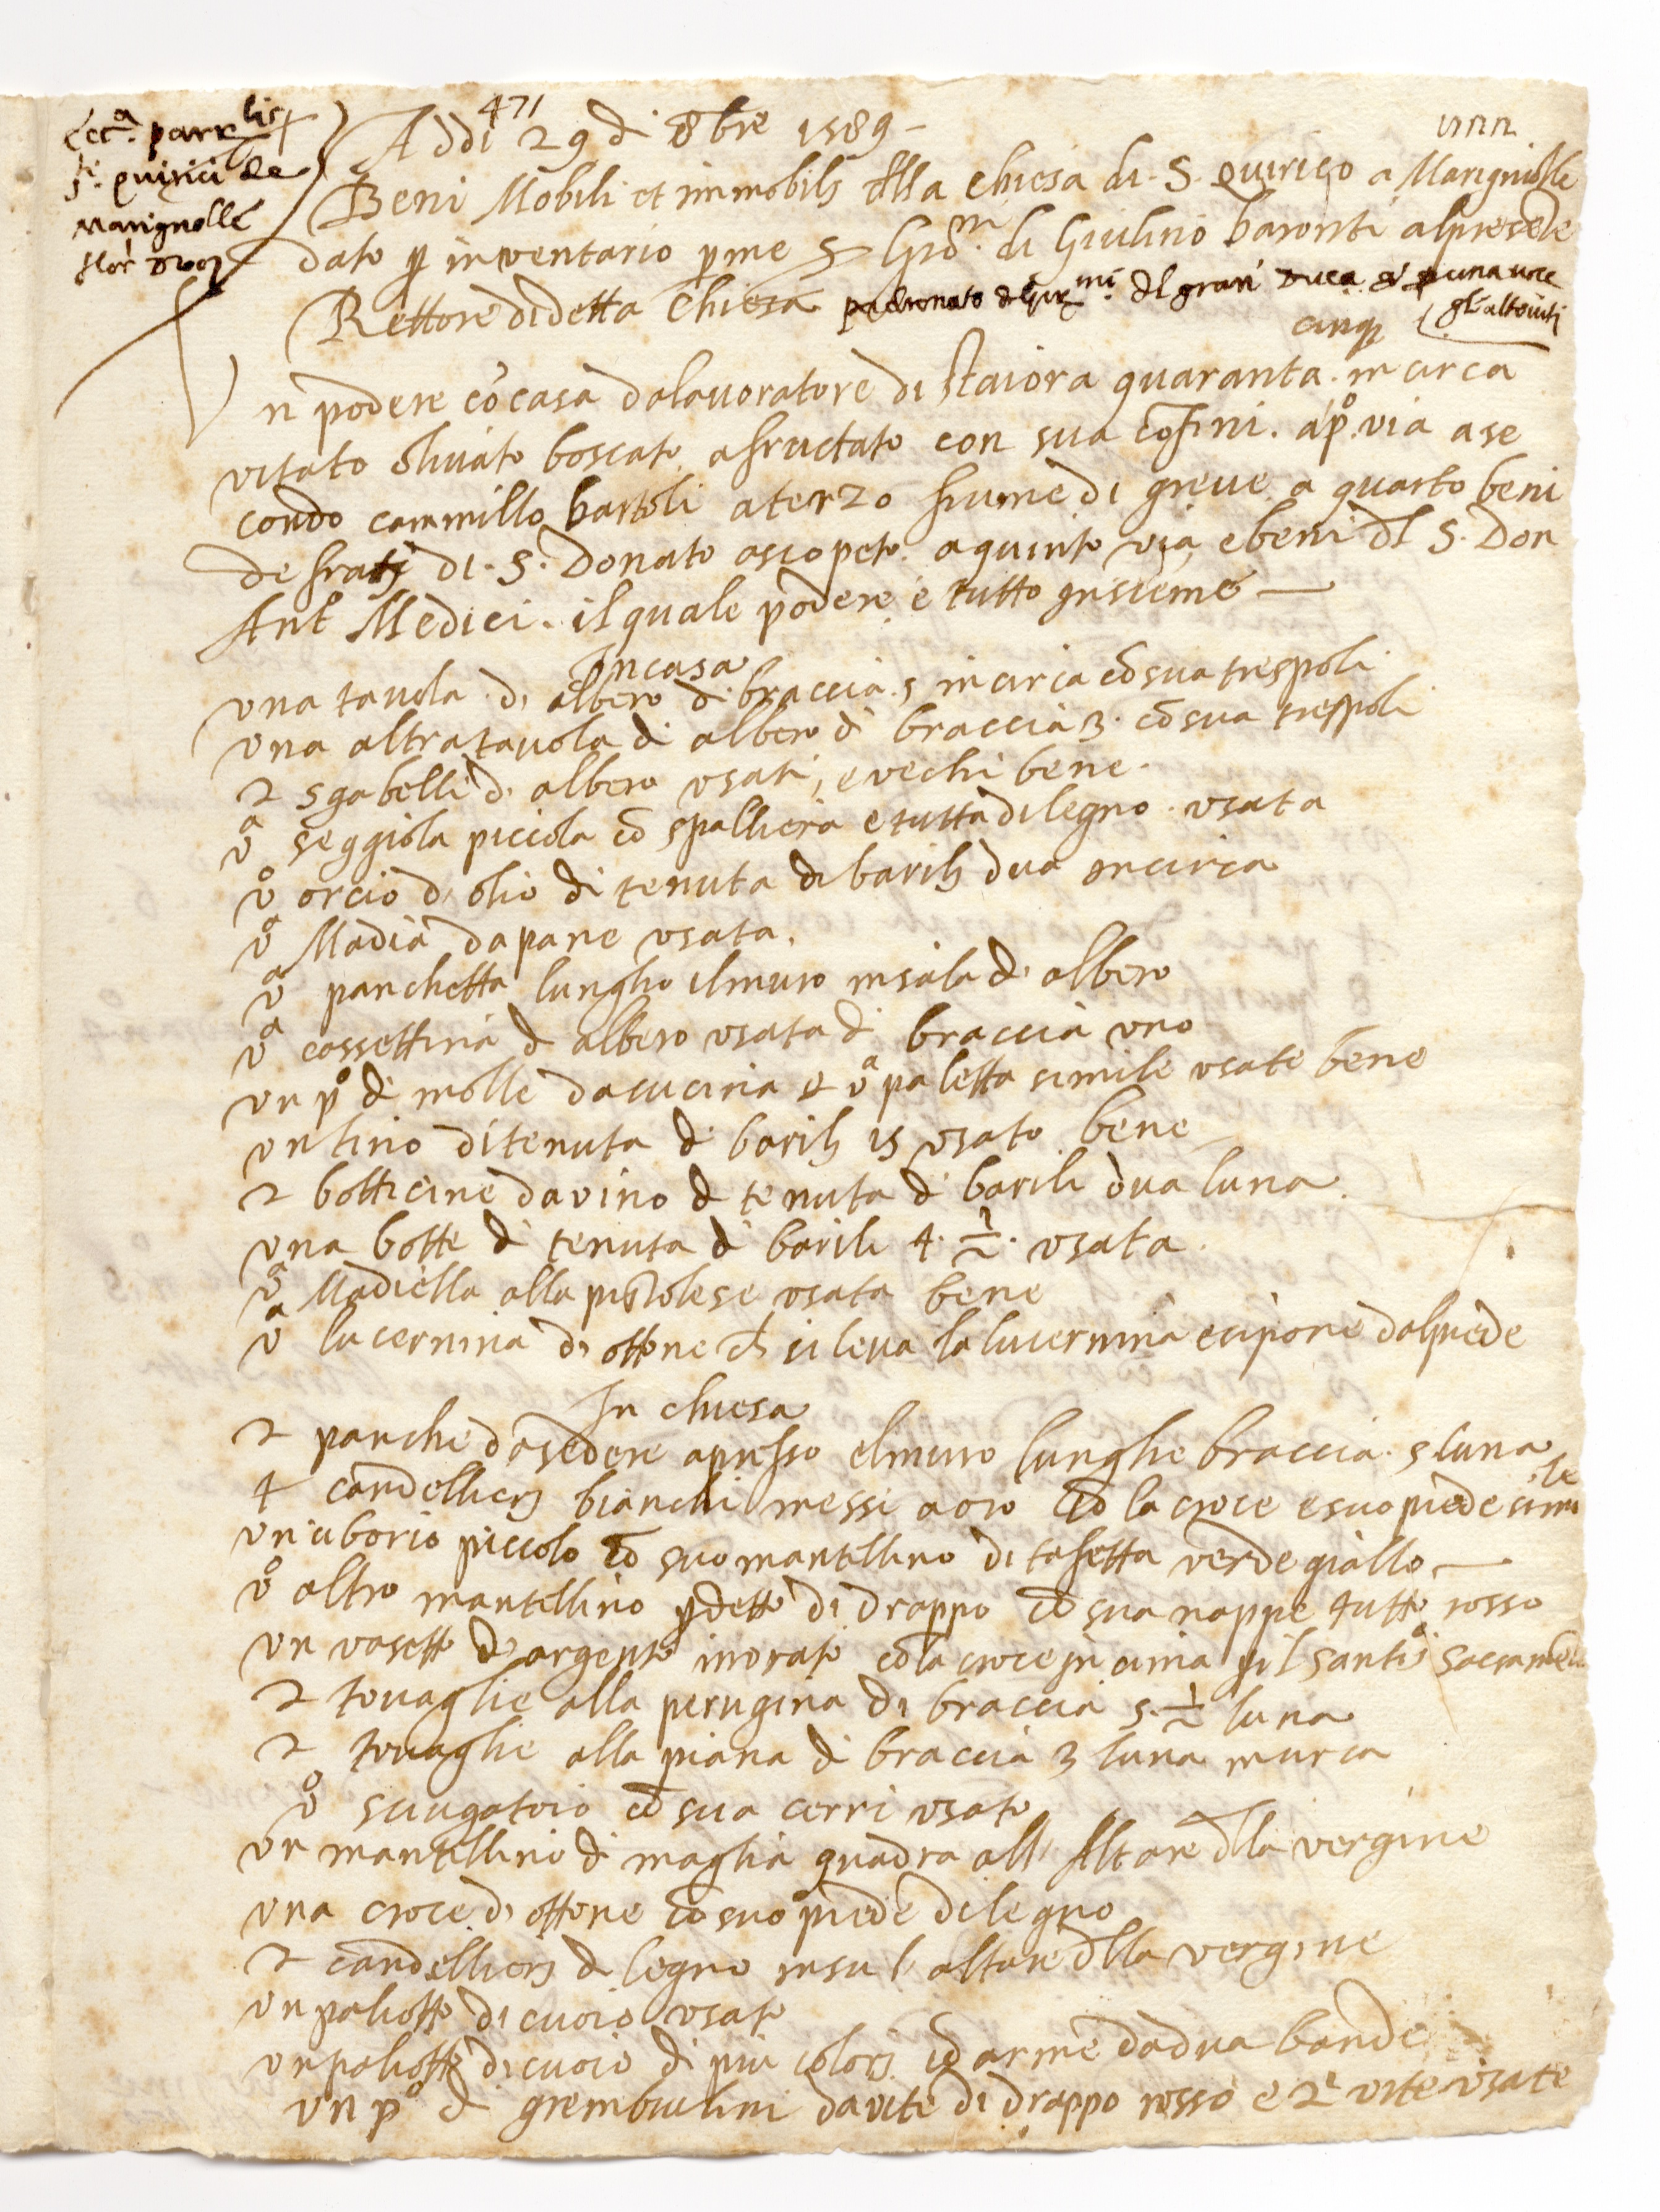 Ecc.a parr.lis
S.ti Quirici de
Marignolle
flor. dioc.
471
Addi 29 di 8bre 1589 -
Beni Mobili et immobili dlla chiesa di S. Quirico a Marignolle
dato p inventario p me S Gio. di Giulino baronti al presete
Rettore di detta Chiesa padronato dl gran Duca et p una voce
gl'altoviti
cinq
Un podere cō casa da lavoratore di staiora quaranta in circa
vitato ulivato boscato afructato con sua cōfini. a p.o via a se
condo cammillo bartoli a terzo fiume di greve a quarto beni
de frati di S. Donato a scopeto. a quinto via e beni dl S. Don
Ant.o Medici. il quale podere è tutto insieme —
In casa
una tavola di albero di braccia 5 in circa cō sua trespoli
una altra tavola di albero di braccia 3. cō sua trespoli
2 sgabelli di albero usati, e vechi bene.
va seggiola piccola cō spalliera e tutta di legno. usata
vo orcio da olio di tenuta di barili dua in circa
va Madia da pane usata.
va panchetta lungho il muro in sala di albero
va cassettina di albero usata di braccia uno
un po di molle da cucina et va paletta simile usate bene
un tino di tenuta di barili 15 usato bene
2 botticine da vino di tenuta di barili dua luna
una botte di tenuta di barili 4. 1/2. usata
va Madiella alla pistolese usata bene
va lucernina di ottone ch si leva la lucernina e si pone dal piede
In chiesa
2 panche da sedere apresso el muro lunghe braccia. 5 luna
4 candellieri bianchi messi a oro cō la croce e suo piede simile
un ciborio piccolo cō suo mantellino di tafetta verde giallo —
vo altro mantellino p detto di drappo cō sua nappe tutto rosso
un vasetto d'argento inorato cō la croce in cima p il santo Sacrame
2 tovaglie alla perugina di braccia 5. 1/2 luna
2 tovaglie alla piana di braccia 3 luna in circa
vo sciugatoio cō sua cerri usato
un mantellino di maglia quadra all Altare dlla vergine
una croce di ottone cō suo piede di legno
2 candellieri di legno in su l altare dlla vergine
un paliotto di cuoio usato
un paliotto di cuoio di più colori cō arme da dua bande
un po di grembiulini da vite di drappo rosso e 2 vite usate